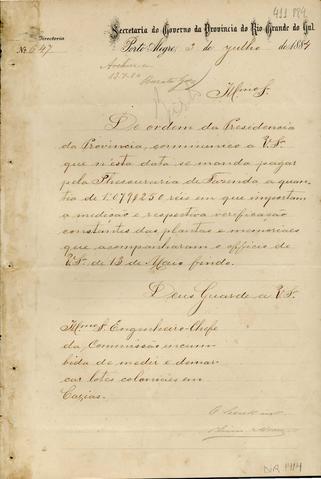 411.884
Secretaria do Governo da Provincia do Rio Grande do Sul
Directoria
N.º 647
Porto Alegre, 2 de Julho de 1884
Archive-se
Illmo Sr.
De ordem da Presidencia
da Provincia, communico a V. Sª
que n'esta data se manda pagar
pela Thesouraria de Fazenda a quan
tia de 1:079$250 réis em que importam
a medição e respectiva verificação
constantes das plantas e memoriaes
que acompanharam o officio de
V. Sª de 13 de Maio findo.
Deus Guarde a V. Sª
Illmo Sr. Engenheiro-Chefe
da Commissão incum
bida de medir e demar
car lotes coloniaes em
Caxias.